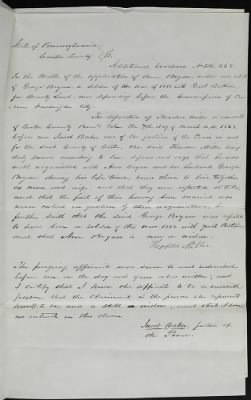 State of Pennsylvania
Centre County SS.
Additional Evidence No 316.668
In the Matter of the application of Ann Bryan under an act
of George Bryan, a soldier of the War of 1812 with Great Britain
for Bounty Land, now depending before the Commissioner of Pen-
sions Washington City.
The deposition of Thaddeus Miller a resident
of Centre County Penna. taken the 7th day of March A.D. 1862
before me Jacob Baker one of the Justices of the Peace in and
for the said County of Centre, the said Miller being
duly sworn according to law deposes and says that he was
well acquainted with Ann Bryan and her husband George
Bryan during his life time, knew them to live together
as man and wife, and that they were reputed as such,
and that the fact of their having been married was
never called in question by their acquaintances. And
further saith that the said George Bryan was reputed
to have been a soldier of the War 1812 with Great Britain
and that Ann Bryan is now a widow
Miller
The foregoing affidavit was sworn to and subscribed
before me on the day and year above written; and
I certify that I know the affiant to be a credible
person, that the claimant is the person she represents
herself to be, and is still a widow, and that I have
no interest in this claim
Jacob Baker, Justice of
the Peace.